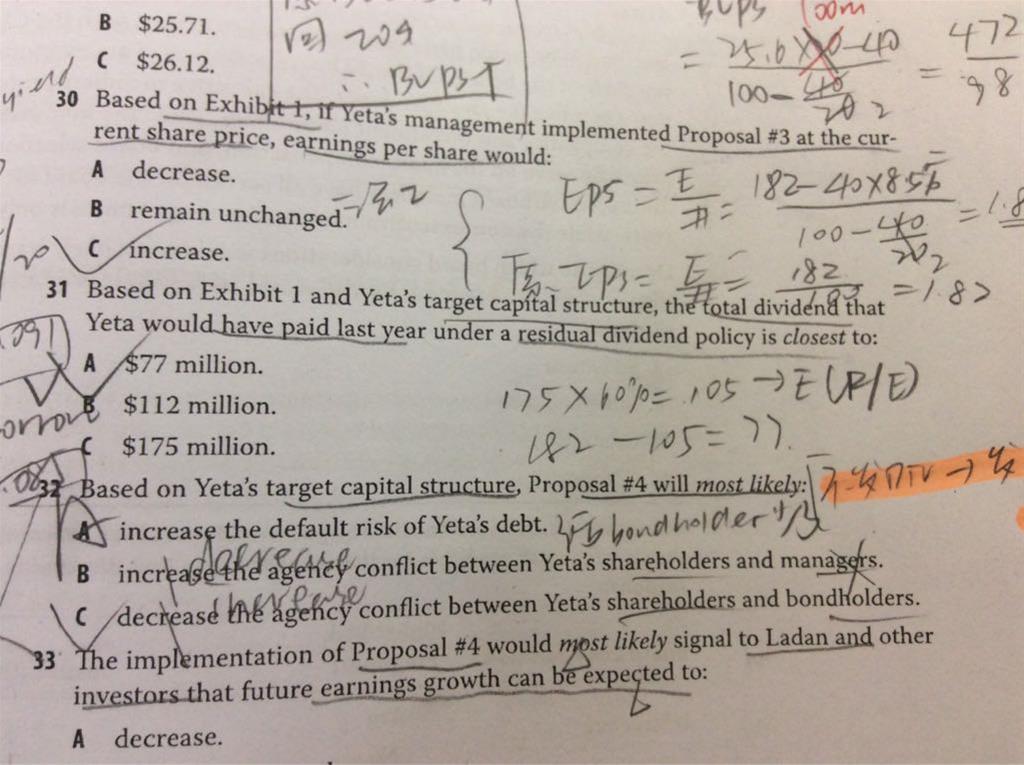 B $25.71.
C $26.12.
回 20q
∴ BVPS↑
BVPS
= 25.6 X 10-40 / 100- 40/20 2 = 472 / 98
yield
30 Based on Exhibit 1, if Yeta's management implemented Proposal #3 at the cur-
rent share price, earnings per share would:
A decrease.
B remain unchanged.
C increase.
EPS = E/# = 182-40X8.5% / 100- 40/20 2 = 1.8
EPS = E/# = 182 = 1.82
31 Based on Exhibit 1 and Yeta's target capital structure, the total dividend that
Yeta would have paid last year under a residual dividend policy is closest to:
A $77 million.
B $112 million.
C $175 million.
175 X 60%= 105 → E (R/E)
182 -105= 77.
32 Based on Yeta's target capital structure, Proposal #4 will most likely:
A increase the default risk of Yeta's debt.
bondholder
B increase the agency conflict between Yeta's shareholders and managers.
decrease
C decrease the agency conflict between Yeta's shareholders and bondholders.
increase
33 The implementation of Proposal #4 would most likely signal to Ladan and other
investors that future earnings growth can be expected to:
A decrease.